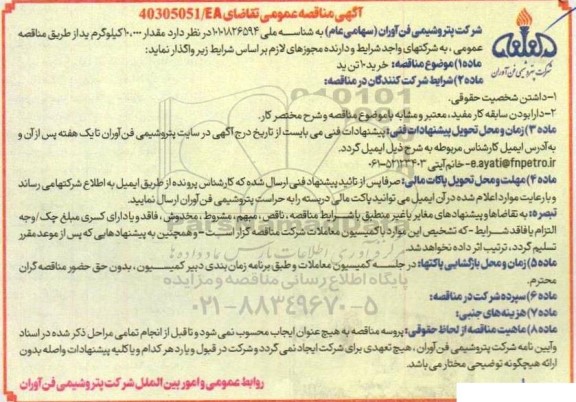 آگهی مناقصه عمومی تقاضای 40305051/EA
شرکت پتروشیمی فن آوران (سهامی عام) به شناسه ملی ۱۰۱۰۱۸۲۶۵۹۴ در نظر دارد مقدار ۱۰.۰۰۰ کیلوگرم ید از طریق مناقصه
عمومی ، به شرکتهای واجد شرایط و دارنده مجوزهای لازم بر اساس شرایط زیر واگذار نماید:
ماده ۱) موضوع مناقصه: خرید ۱۰ تن ید
ماده ۲) شرایط شرکت کنندگان در مناقصه:
۱-داشتن شخصیت حقوقی.
۲-دارا بودن سابقه کار مفید، معتبر و مشابه با موضوع مناقصه و شرح مختصر کار.
ماده ۳) زمان و محل تحویل پیشنهادات فنی: پیشنهادات فنی می بایست از تاریخ درج آگهی در سایت پتروشیمی فن آوران تا یک هفته پس از آن و
به آدرس ایمیل کارشناس مربوطه به شرح ذیل ایمیل گردد.
e.ayati@fnpetro.ir-خانم آیتی ۵۲۱۲۳۴۰۳-۰۶۱
ماده ۴) مهلت و محل تحویل پاکات مالی: صرفا پس از تائید پیشنهاد فنی ارسال شده که کارشناس پرونده از طریق ایمیل به اطلاع شرکتها می رساند
و با رعایت موارد اعلام شده در آن ایمیل می توانید پاکت مالی دربسته را به حراست پتروشیمی فن آوران ارسال نمایید.
تبصره: به تقاضاها و پیشنهاد های مغایر یا غیر منطبق با شرایط مناقصه ، ناقص ، مبهم ، مشروط ، مخدوش ، فاقد و یا دارای کسری مبلغ چک / وجه
التزام یا فاقد شرایط - که تشخیص این موارد با کمیسیون معاملات شرکت مناقصه گزار است - و همچنین به پیشنهادهایی که پس از موعد مقرر
تسلیم گردد ، ترتیب اثر داده نخواهد شد.
ماده ۵) زمان و محل بازگشایی پاکتها: در جلسه کمیسیون معاملات و طبق برنامه زمان بندی دبیر کمیسیون ، بدون حق حضور مناقصه گران
محترم.
ماده ۶) سپرده شرکت در مناقصه:
ماده ۷) هزینه های جنبی:
ماده ۸) ماهیت مناقصه از لحاظ حقوقی: پروسه مناقصه به هیچ عنوان ایجاب محسوب نمی شود و تا قبل از انجام تمامی مراحل ذکر شده در اسناد
و آیین نامه شرکت پتروشیمی فن آوران ، هیچ تعهدی برای شرکت ایجاد نمی گردد و شرکت در قبول و یا رد هر کدام و یا کلیه پیشنهادات واصله بدون
ارائه هیچگونه توضیحی مختار می باشد.
روابط عمومی و امور بین الملل شرکت پتروشیمی فن آوران
شرکت پتروشیمی فن آوران
پایگاه اطلاع رسانی مناقصه و مزایده
۰۲۱-۸۸۳۴۹۶۷۰-۵